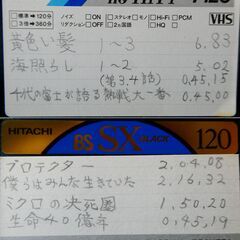 VHS
●標準=120分 ノイズ □ON □OFF □ステレオ □モノ □Hi-Fi □PCM
●3倍=360分 リダクション □ON □OFF □2カ国語 □HQ
黄色い髪 1~3 6.83
海照らし 1~2 5.02
(第3.4話) 0.45.15
千代の富士が語る熱戦大一番 0.45.00
HITACHI BS SX BLACK 120
プロテクター 2,04,08
僕らはみんな生きていた 2,16,32
ミクロの決死圏 1,50,20
生命40億年 0,45,19